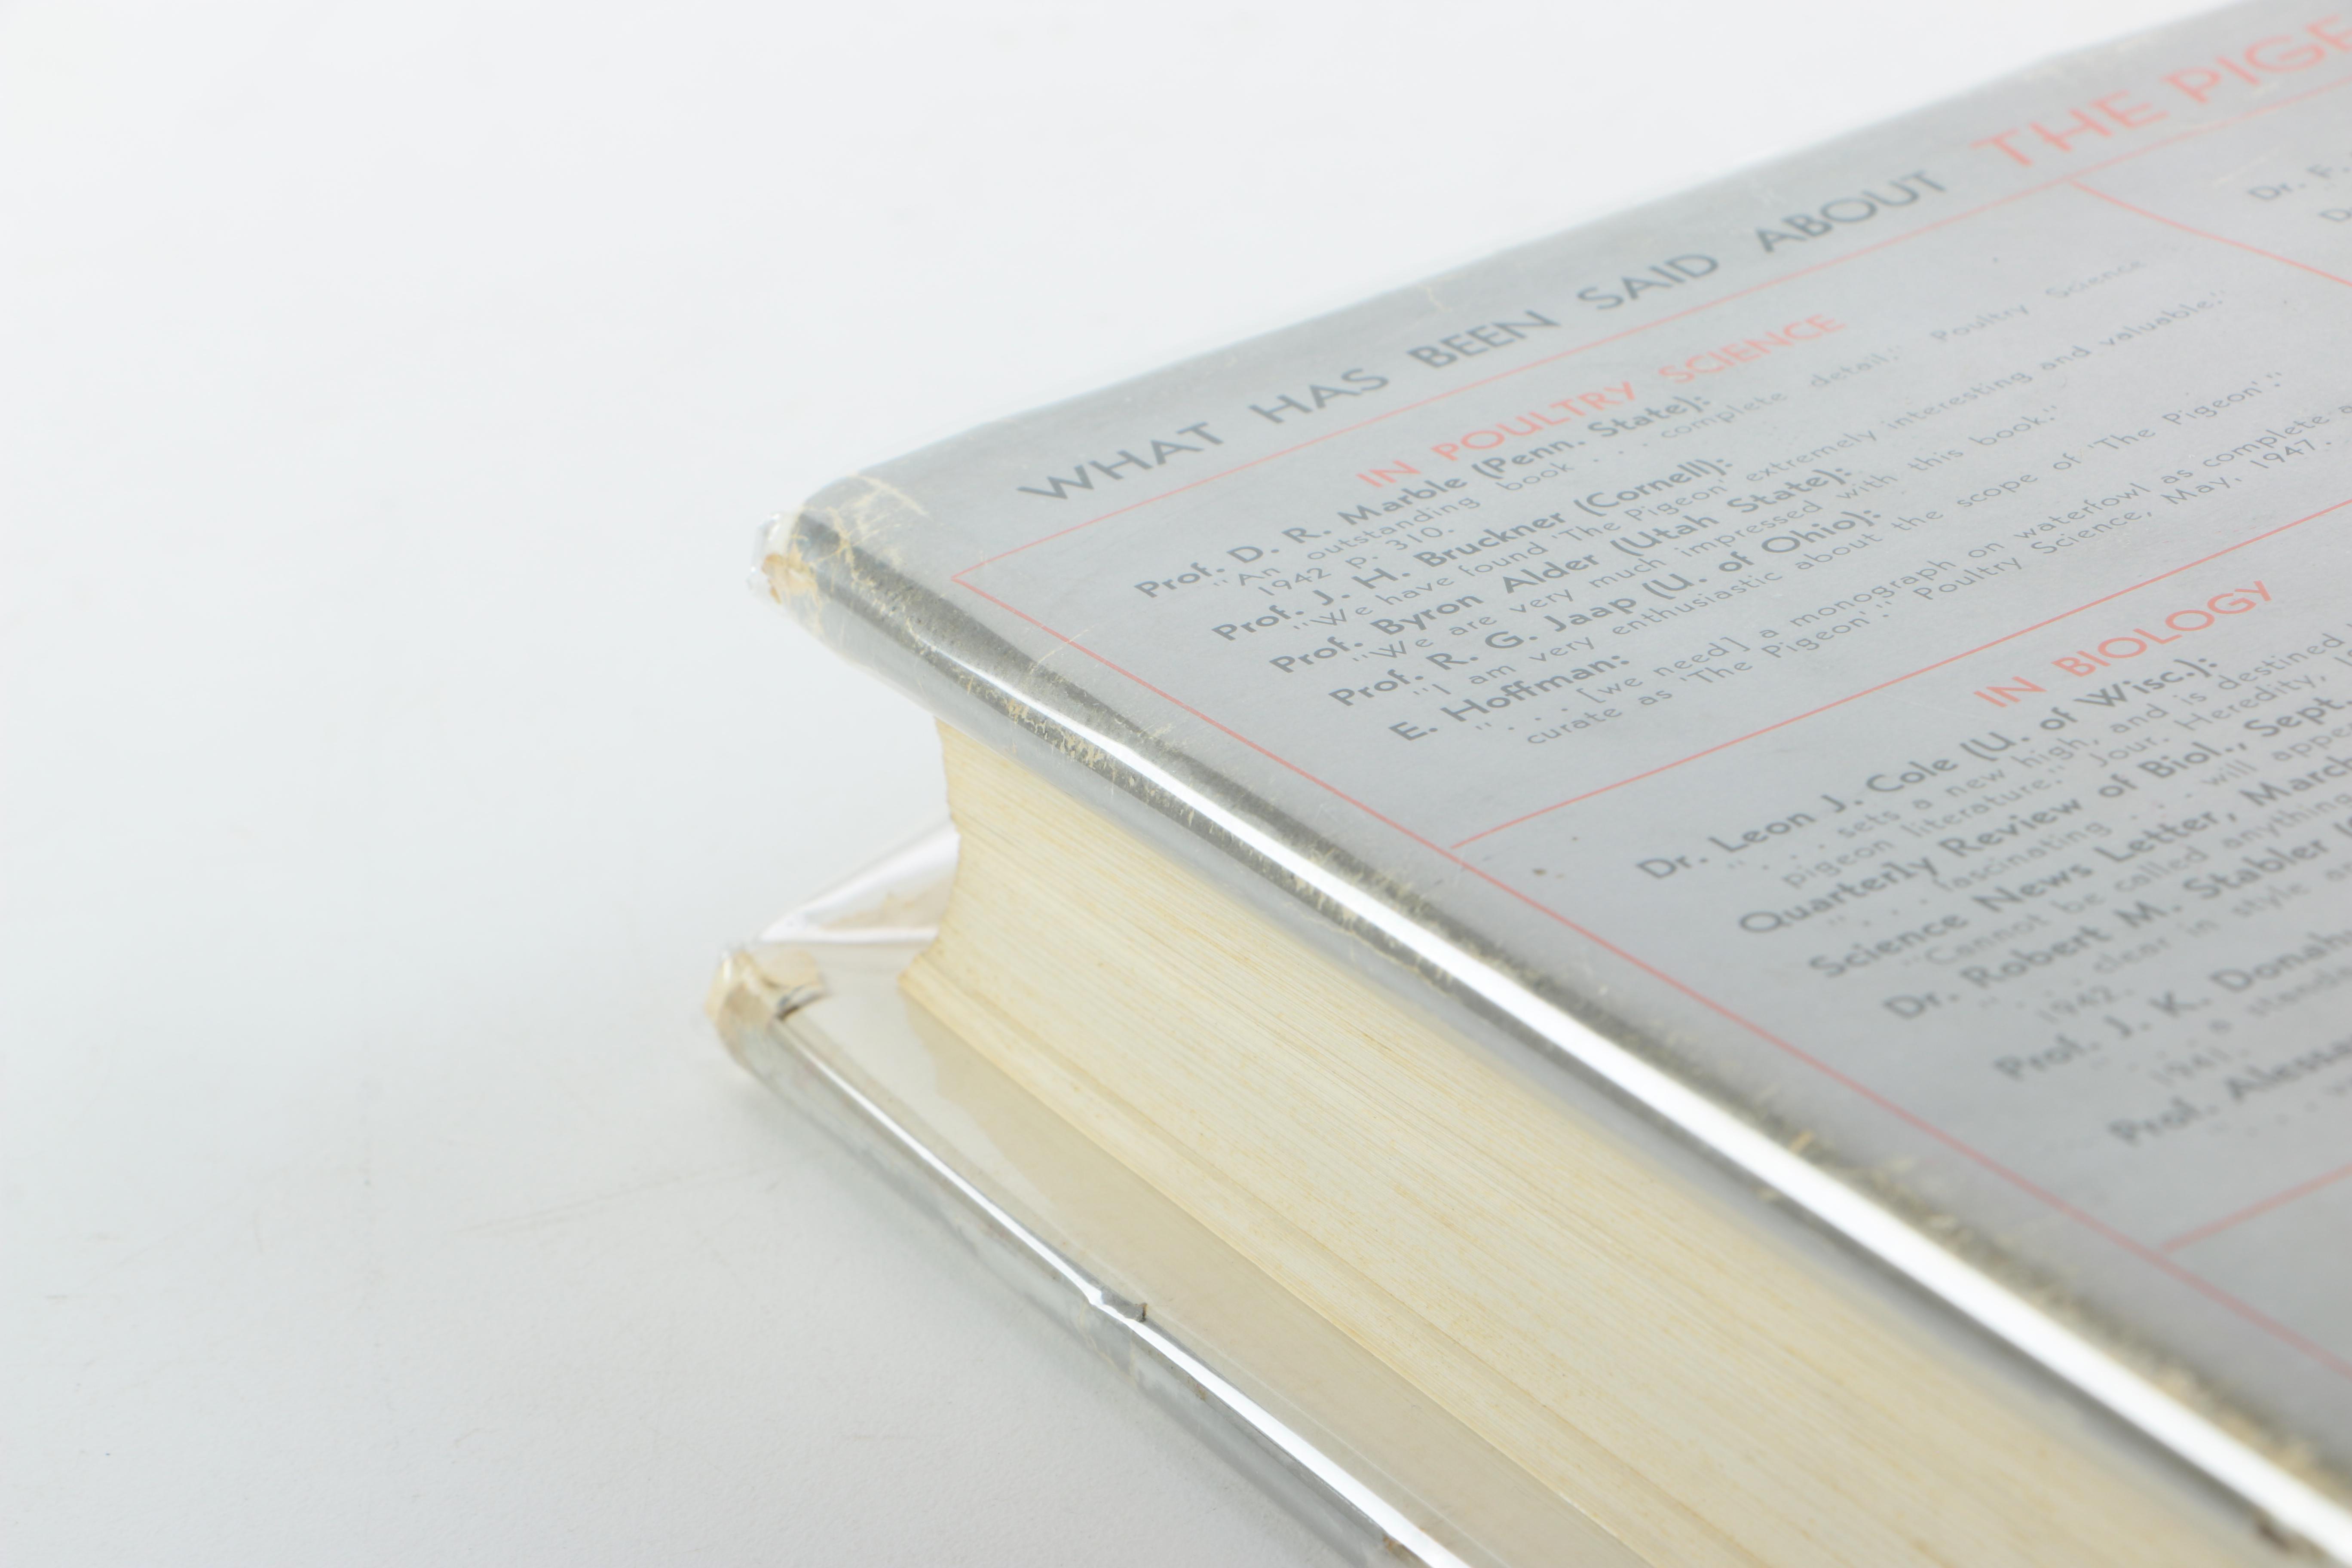 WHAT HAS BEEN SAID ABOUT THE
IN POULTRY SCIENCE
Prof. D. R. Marble (Penn. State):
"An outstanding book . . . complete detail." Poultry Science
1942 p. 310.
Prof. J. H. Bruckner (Cornell):
"We have found 'The Pigeon' extremely interesting and valuable."
Prof. Byron Alder (Utah State):
"We are very much impressed with this book."
Prof. R. G. Jaap (U. of Ohio):
"I am very enthusiastic about the scope of 'The Pigeon'."
E. Hoffman:
". . . [we need] a monograph on waterfowl as complete
curate as 'The Pigeon'." Poultry Science, May, 1947.
IN BIOLOGY
Dr. Leon J. Cole (U. of Wisc.):
". . . sets a new high, and is destined
pigeon literature." Jour. Heredity,
Quarterly Review of Biol., Sept.
". . . fascinating . . . will
Science News Letter, March
"Cannot be called anything
Dr. Robert M. Stabler
". . . clear in style
1942.
Prof. J. K.
1941.
Prof.
Dr. F.